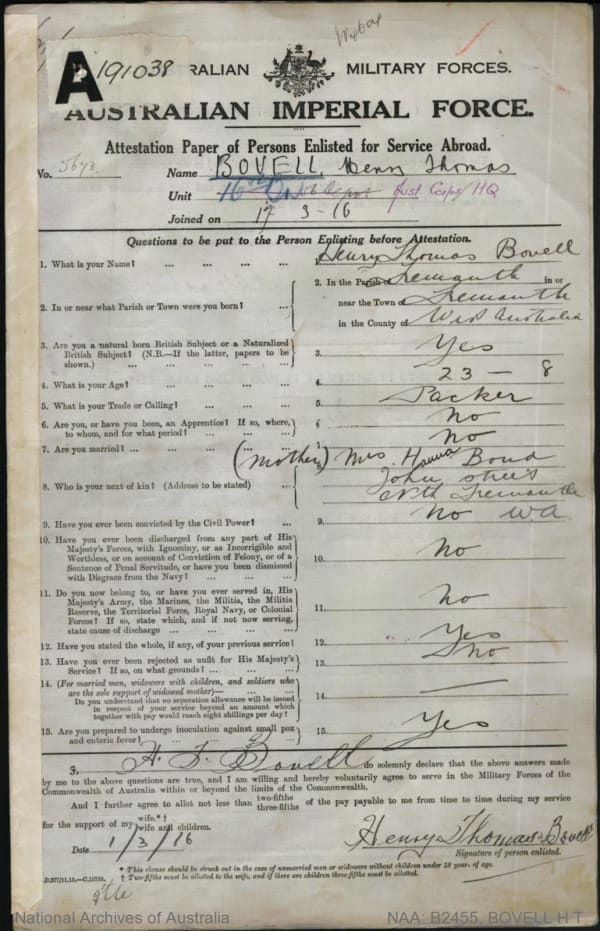 A 191038
AUSTRALIAN MILITARY FORCES.
AUSTRALIAN IMPERIAL FORCE.
Attestation Paper of Persons Enlisted for Service Abroad.
No. 5673 Name BOVELL, Henry Thomas
Unit 16th Depot Aust Corps HQ
Joined on 17 3-16
Questions to be put to the Person Enlisting before Attestation.
1. What is your Name? ... ... ... ... Henry Thomas Bovell
2. In or near what Parish or Town were you born? ... 2. In the Parish of Fremantle in or
near the Town of Fremantle
in the County of West Australia
3. Are you a natural born British Subject or a Naturalized
British Subject? (N.B.—If the latter, papers to be
shown.) ... ... ... ... ... 3. Yes
4. What is your Age? ... ... ... ... 4. 23 — 8
5. What is your Trade or Calling? ... ... ... 5. Packer
6. Are you, or have you been, an Apprentice? If so, where,
to whom, and for what period? ... ... ... 6 No
7. Are you married? ... ... ... ... ... No
8. Who is your next of kin? (Address to be stated) ... (Mother) Mrs. Hanna Bond
John Street
Nth Fremantle
WA
9. Have you ever been convicted by the Civil Power? ... 9. No
10. Have you ever been discharged from any part of His
Majesty's Forces, with Ignominy, or as Incorrigible and
Worthless, or on account of Conviction of Felony, or of a
Sentence of Penal Servitude, or have you been dismissed
with Disgrace from the Navy? ... ... ... 10. No
11. Do you now belong to, or have you ever served in, His
Majesty's Army, the Marines, the Militia, the Militia
Reserve, the Territorial Force, Royal Navy, or Colonial
Forces? If so, state which, and if not now serving,
state cause of discharge ... ... ... ... 11. No
12. Have you stated the whole, if any, of your previous service? 12. Yes
13. Have you ever been rejected as unfit for His Majesty's
Service? If so, on what grounds? ... ... ... 13. No
14. (For married men, widowers with children, and soldiers who
are the sole support of widowed mother)—
Do you understand that no separation allowance will be issued
in respect of your service beyond an amount which
together with pay would reach eight shillings per day? 14. —
15. Are you prepared to undergo inoculation against small pox
and enteric fever? ... ... ... ... 15. Yes
I, H. T. Bovell do solemnly declare that the above answers made
by me to the above questions are true, and I am willing and hereby voluntarily agree to serve in the Military Forces of the
Commonwealth of Australia within or beyond the limits of the Commonwealth.
And I further agree to allot not less than two-fifths three-fifths of the pay payable to me from time to time during my service
for the support of my wife.*† wife and children.
Date 1/3/16 Henry Thomas Bovell
Signature of person enlisted.
* This clause should be struck out in the case of unmarried men or widowers without children under 18 year. of age.
† Two-fifths must be allotted to the wife, and if there are children three-fifths must be allotted.
National Archives of Australia NAA: B2455, BOVELL H T